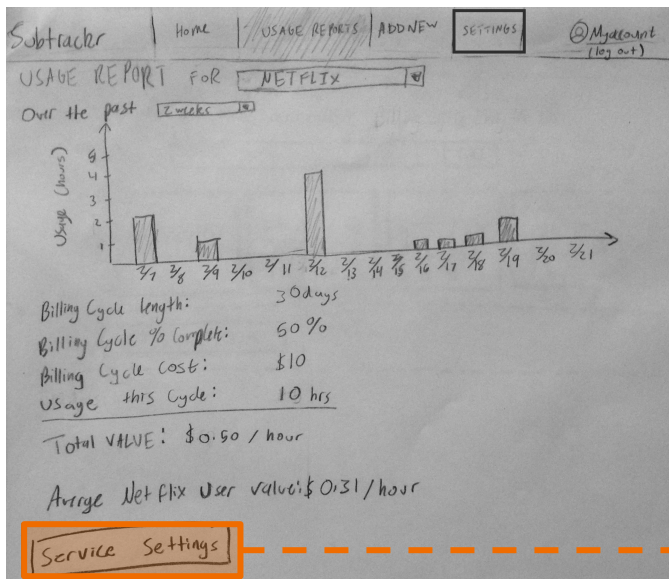 Subtrackr
HOME
USAGE REPORTS
ADD NEW
SETTINGS
My account
(log out)
USAGE REPORT FOR NETFLIX
Over the past 2 weeks
Usage (hours)
5
4
3
2
1
2/7 2/8 2/9 2/10 2/11 2/12 2/13 2/14 2/15 2/16 2/17 2/18 2/19 2/20 2/21
Billing Cycle length: 30 days
Billing Cycle % Complete: 50%
Billing Cycle Cost: $10
Usage this Cycle: 10 hrs
Total VALUE: $0.50 / hour
Averge Netflix User value: $0.31/hour
Service Settings